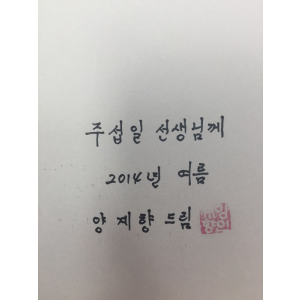 주섭일 선생님께
2014년 여름
양재향 드림